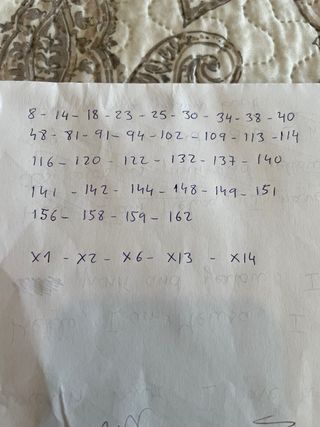 8 - 14 - 18 - 23 - 25 - 30 - 34 - 38 - 40
48 - 81 - 91 - 94 - 102 - 109 - 113 - 114
116 - 120 - 122 - 132 - 137 - 140
141 - 142 - 144 - 148 - 149 - 151
156 - 158 - 159 - 162
X1 - X2 - X6 - X13 - X14